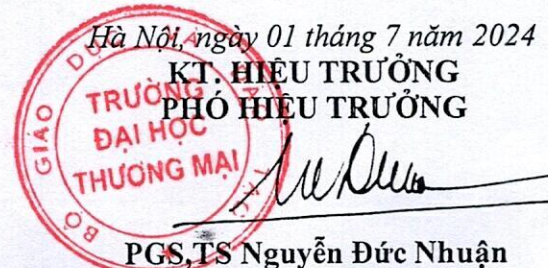 Hà Nội, ngày 01 tháng 7 năm 2024
KT. HIỆU TRƯỞNG
PHÓ HIỆU TRƯỞNG
BỘ GIÁO DỤC VÀ ĐÀO TẠO
TRƯỜNG
ĐẠI HỌC
THƯƠNG MẠI
PGS,TS Nguyễn Đức Nhuận